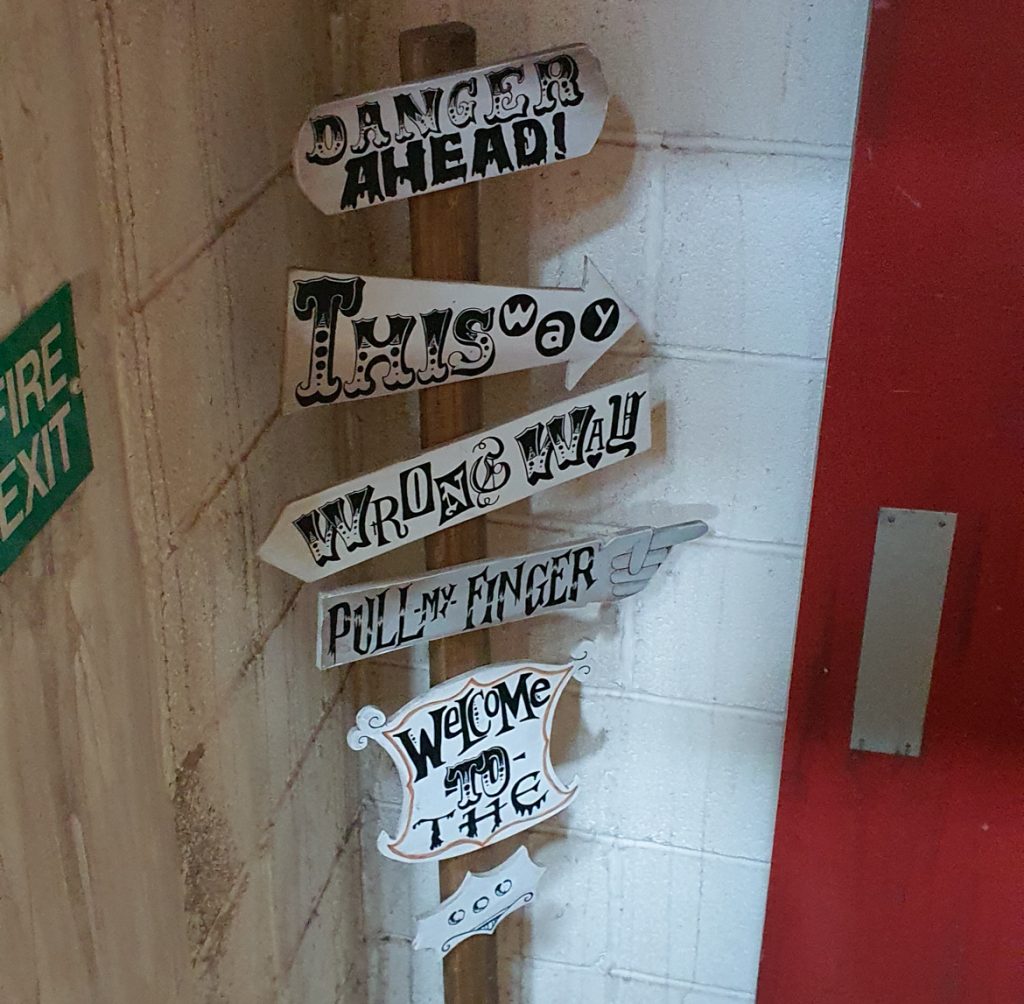 DANGER
AHEAD!
THIS way
WRONG WAY
PULL-MY-FINGER
WELCOME
-TO-
THE
FIRE
EXIT